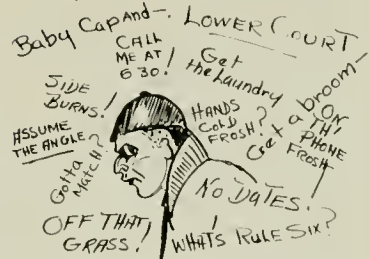 Baby Cap And-.
LOWER COURT
CALL
ME AT
6 30!
Get
the Laundry
SIDE
BURNS!
HANDS
COLD
FROSH?
Get a broom-
ON
TH'
PHONE
FROSH!
ASSUME
THE ANGLE
Gotta
Match?
NO DATES!
OFF THAT
GRASS!
WHATS RULE SIX?